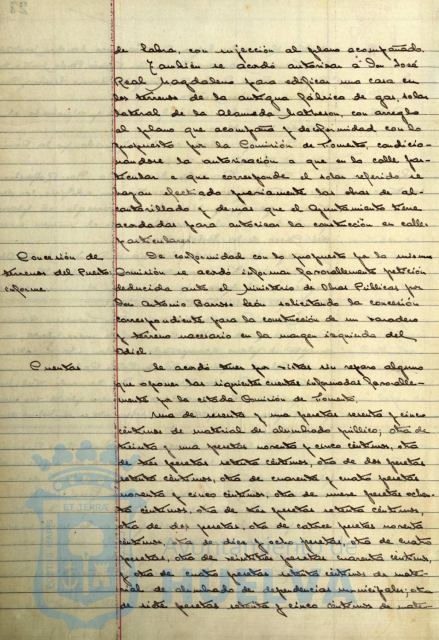 de labra, con sujección al plano acompañado.
También se acordó autorizar á Don José
Real Magdaleno para edificar una casa en
los terrenos de la antigua fábrica de gas, solar
lateral de la Alameda Matheson, con arreglo
al plano que acompaña y de conformidad con lo
propuesto por la Comisión de Fomento, condicio-
nándose la autorización a que en la calle par-
ticular a que corresponde el solar referido se
hayan efectuado previamente las obras de al-
cantarillado y demas que el Ayuntamiento tiene
acordadas para autorizar la construcción en calles
particulares.
Concesión de
terrenos del Puerto.
Informe.
De conformidad con lo propuesto por la misma
Comisión se acordó informar favorablemente petición
deducida ante el Ministerio de Obras Públicas por
Don Antonio Barroso León solicitando la concesión
correspondiente para la construcción de un varadero
y terreno necesario en la margen izquierda del
Odiel.
Cuentas
Se acordó tener por vistas sin reparo alguno
que oponer las siguientes cuentas informadas favorable-
mente por la citada Comisión de Fomento.
Una de sesenta y una pesetas sesenta y cinco
céntimos de material de alumbrado público; otra de
treinta y una pesetas noventa y cinco céntimos, otra
de tres pesetas setenta céntimos, otra de dos pesetas
setenta céntimos, otra de cuarenta y cuatro pesetas
noventa y cinco céntimos, otra de nueve pesetas ochen-
ta céntimos, otra de tres pesetas setenta céntimos,
otra de diez pesetas, otra de catorce pesetas noventa
céntimos, otra de diez y ocho pesetas, otra de cuatro
pesetas, otra de veintitres pesetas noventa céntimos,
y otra de cuatro pesetas setenta céntimos de mate-
rial de alumbrado de dependencias municipales; otra
de siete pesetas setenta y cinco céntimos de mate-